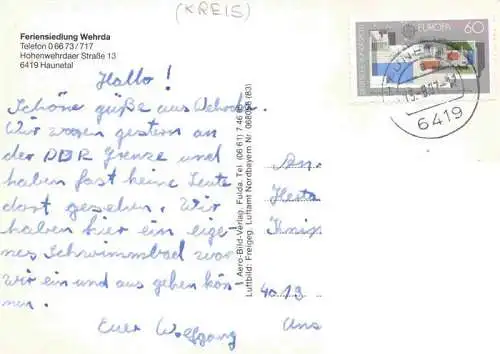 (KREIS)
Feriensiedlung Wehrda
Telefon 0 66 73 / 717
Hohenwehrdaer Straße 13
6419 Haunetal
Hallo!
Schöne güße aus Wehrda.
Wir waren gestern an
der DDR Grenze und
haben fast keine Leute
dort gesehen. Wir
haben hier ein eige
nes Schwimmbad wo
wir ein und aus gehen kön-
nen.
Euer Wolfgang
Aero-Bild-Verlag, Fulda, Tel. (06 61) 7 46
Luftbild: Freigeg. Luftamt Nordbayern Nr. (83)
EUROPA 60
6419
An
Herta
Knix
4013
Ans